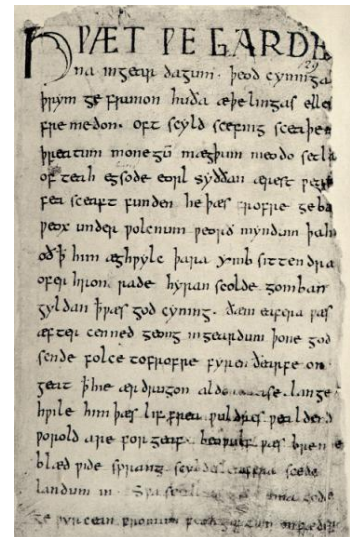 HǷÆT ǷE GARDE
na ingear dagum. þeod cyninga
þrym ge frunon huða æþelingas elle
fremedon. oft scyld scefing sceaþe
þreatum monegū mægþum meodo setla
of teah egsode eorl syððan ærest ƿear
fea sceaft funden he þæs frofre geba
ƿeox under ƿolcnum ƿeorð myndum þah
oð ꝥ him æghƿylc þara ymb sittendra
ofer hron rade hyran scolde gomban
gyldan ꝥ ƿæs god cyning. ðæm eafera ƿæs
æfter cenned geong ingeardum þone god
sende folce tofrofre fyren ðearfe on
geat ꝥ hie ær drugon aldor ase. lange
hƿile him þæs lif frea ƿuldres ƿealdend
ƿorold are forgeaf. beoƿulf ƿæs breme
blæd ƿide sprang scyldes eafera scede
landum in. Sƿa sceal uma gode
ge ƿyrcean fromum feoh giftum on fæder